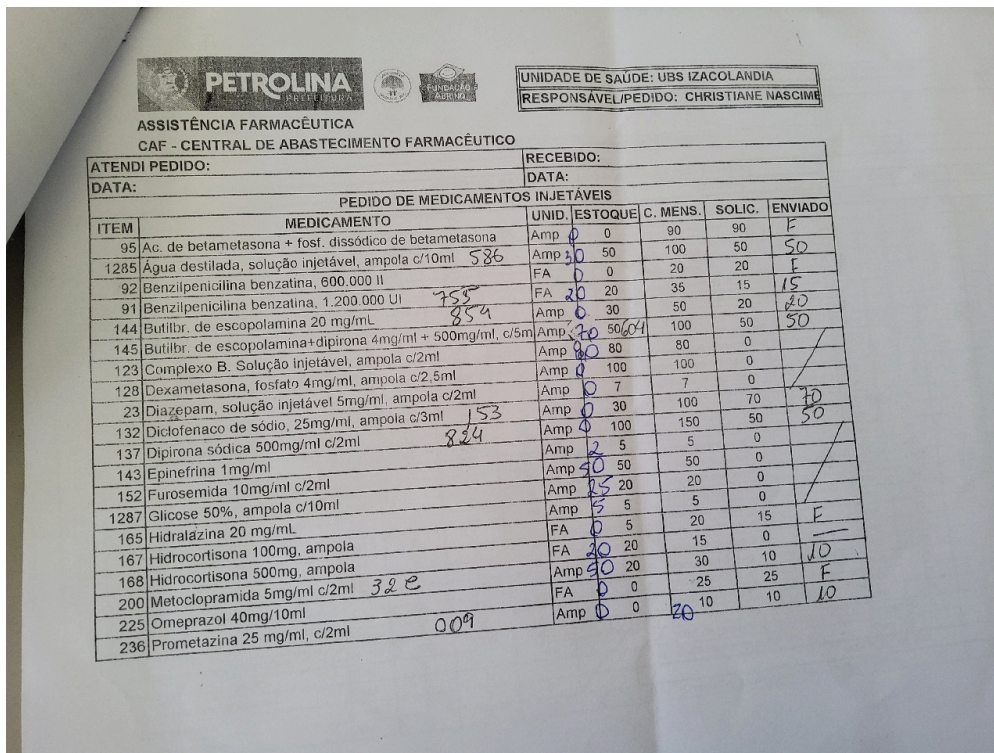 PETROLINA
PREFEITURA
FUNDAÇÃO
UNIDADE DE SAÚDE: UBS IZACOLANDIA
RESPONSÁVEL/PEDIDO: CHRISTIANE NASCIME
ASSISTÊNCIA FARMACÊUTICA
CAF - CENTRAL DE ABASTECIMENTO FARMACÊUTICO
ATENDI PEDIDO: RECEBIDO:
DATA: DATA:
PEDIDO DE MEDICAMENTOS INJETÁVEIS
ITEM MEDICAMENTO UNID. ESTOQUE C. MENS. SOLIC. ENVIADO
95 Ac. de betametasona + fosf. dissódico de betametasona Amp 0 0 90 90 F
1285 Água destilada, solução injetável, ampola c/10ml 586 Amp 30 50 100 50 50
92 Benzilpenicilina benzatina, 600.000 II FA 0 0 20 20 F
91 Benzilpenicilina benzatina, 1.200.000 UI 755 FA 20 20 35 15 15
144 Butilbr. de escopolamina 20 mg/mL 854 Amp 0 30 50 20 20
145 Butilbr. de escopolamina+dipirona 4mg/ml + 500mg/ml, c/5m Amp 70 50 604 100 50 50
123 Complexo B. Solução injetável, ampola c/2ml Amp 80 80 80 0
128 Dexametasona, fosfato 4mg/ml, ampola c/2,5ml Amp 0 100 100 0
23 Diazepam, solução injetável 5mg/ml, ampola c/2ml Amp 0 7 7 0
132 Diclofenaco de sódio, 25mg/ml, ampola c/3ml 153 Amp 0 30 100 70 70
137 Dipirona sódica 500mg/ml c/2ml 824 Amp 0 100 150 50 50
143 Epinefrina 1mg/ml Amp 2 5 5 0
152 Furosemida 10mg/ml c/2ml Amp 50 50 50 0
1287 Glicose 50%, ampola c/10ml Amp 25 20 20 0
165 Hidralazina 20 mg/mL Amp 5 5 5 0
167 Hidrocortisona 100mg, ampola FA 0 5 20 15 F
168 Hidrocortisona 500mg, ampola FA 20 20 15 0
200 Metoclopramida 5mg/ml c/2ml 32 Amp 50 20 30 10 10
225 Omeprazol 40mg/10ml FA 0 0 25 25 F
236 Prometazina 25 mg/ml, c/2ml 009 Amp 0 0 20 10 10 10